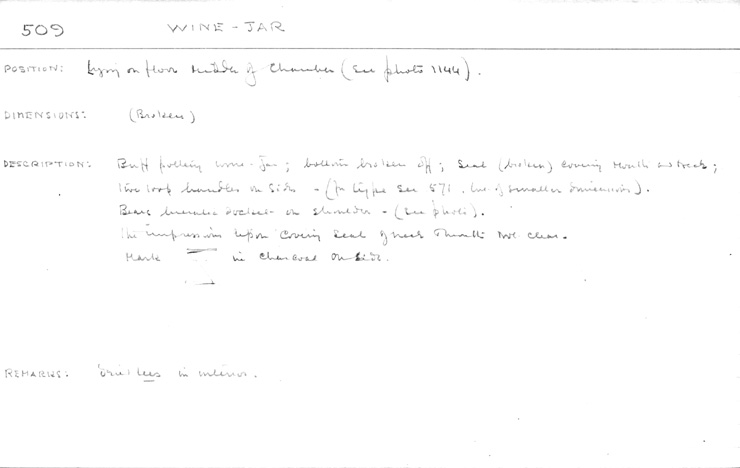 509 WINE-JAR
POSITION: Lying on floor Middle of Chamber (See photo 1144).
DIMENSIONS: (Broken)
DESCRIPTION: Buff pottery wine-jar; bottom broken off; Seal (broken) covering Mouth and Neck;
two loop handles on side - (for type see 571. but of smaller dimensions).
Bears hieratic docket on shoulder - (See photo).
The impression upon covering Seal of neck & mouth not clear.
Mark in charcoal on side.
REMARKS: Dried lees in interior.